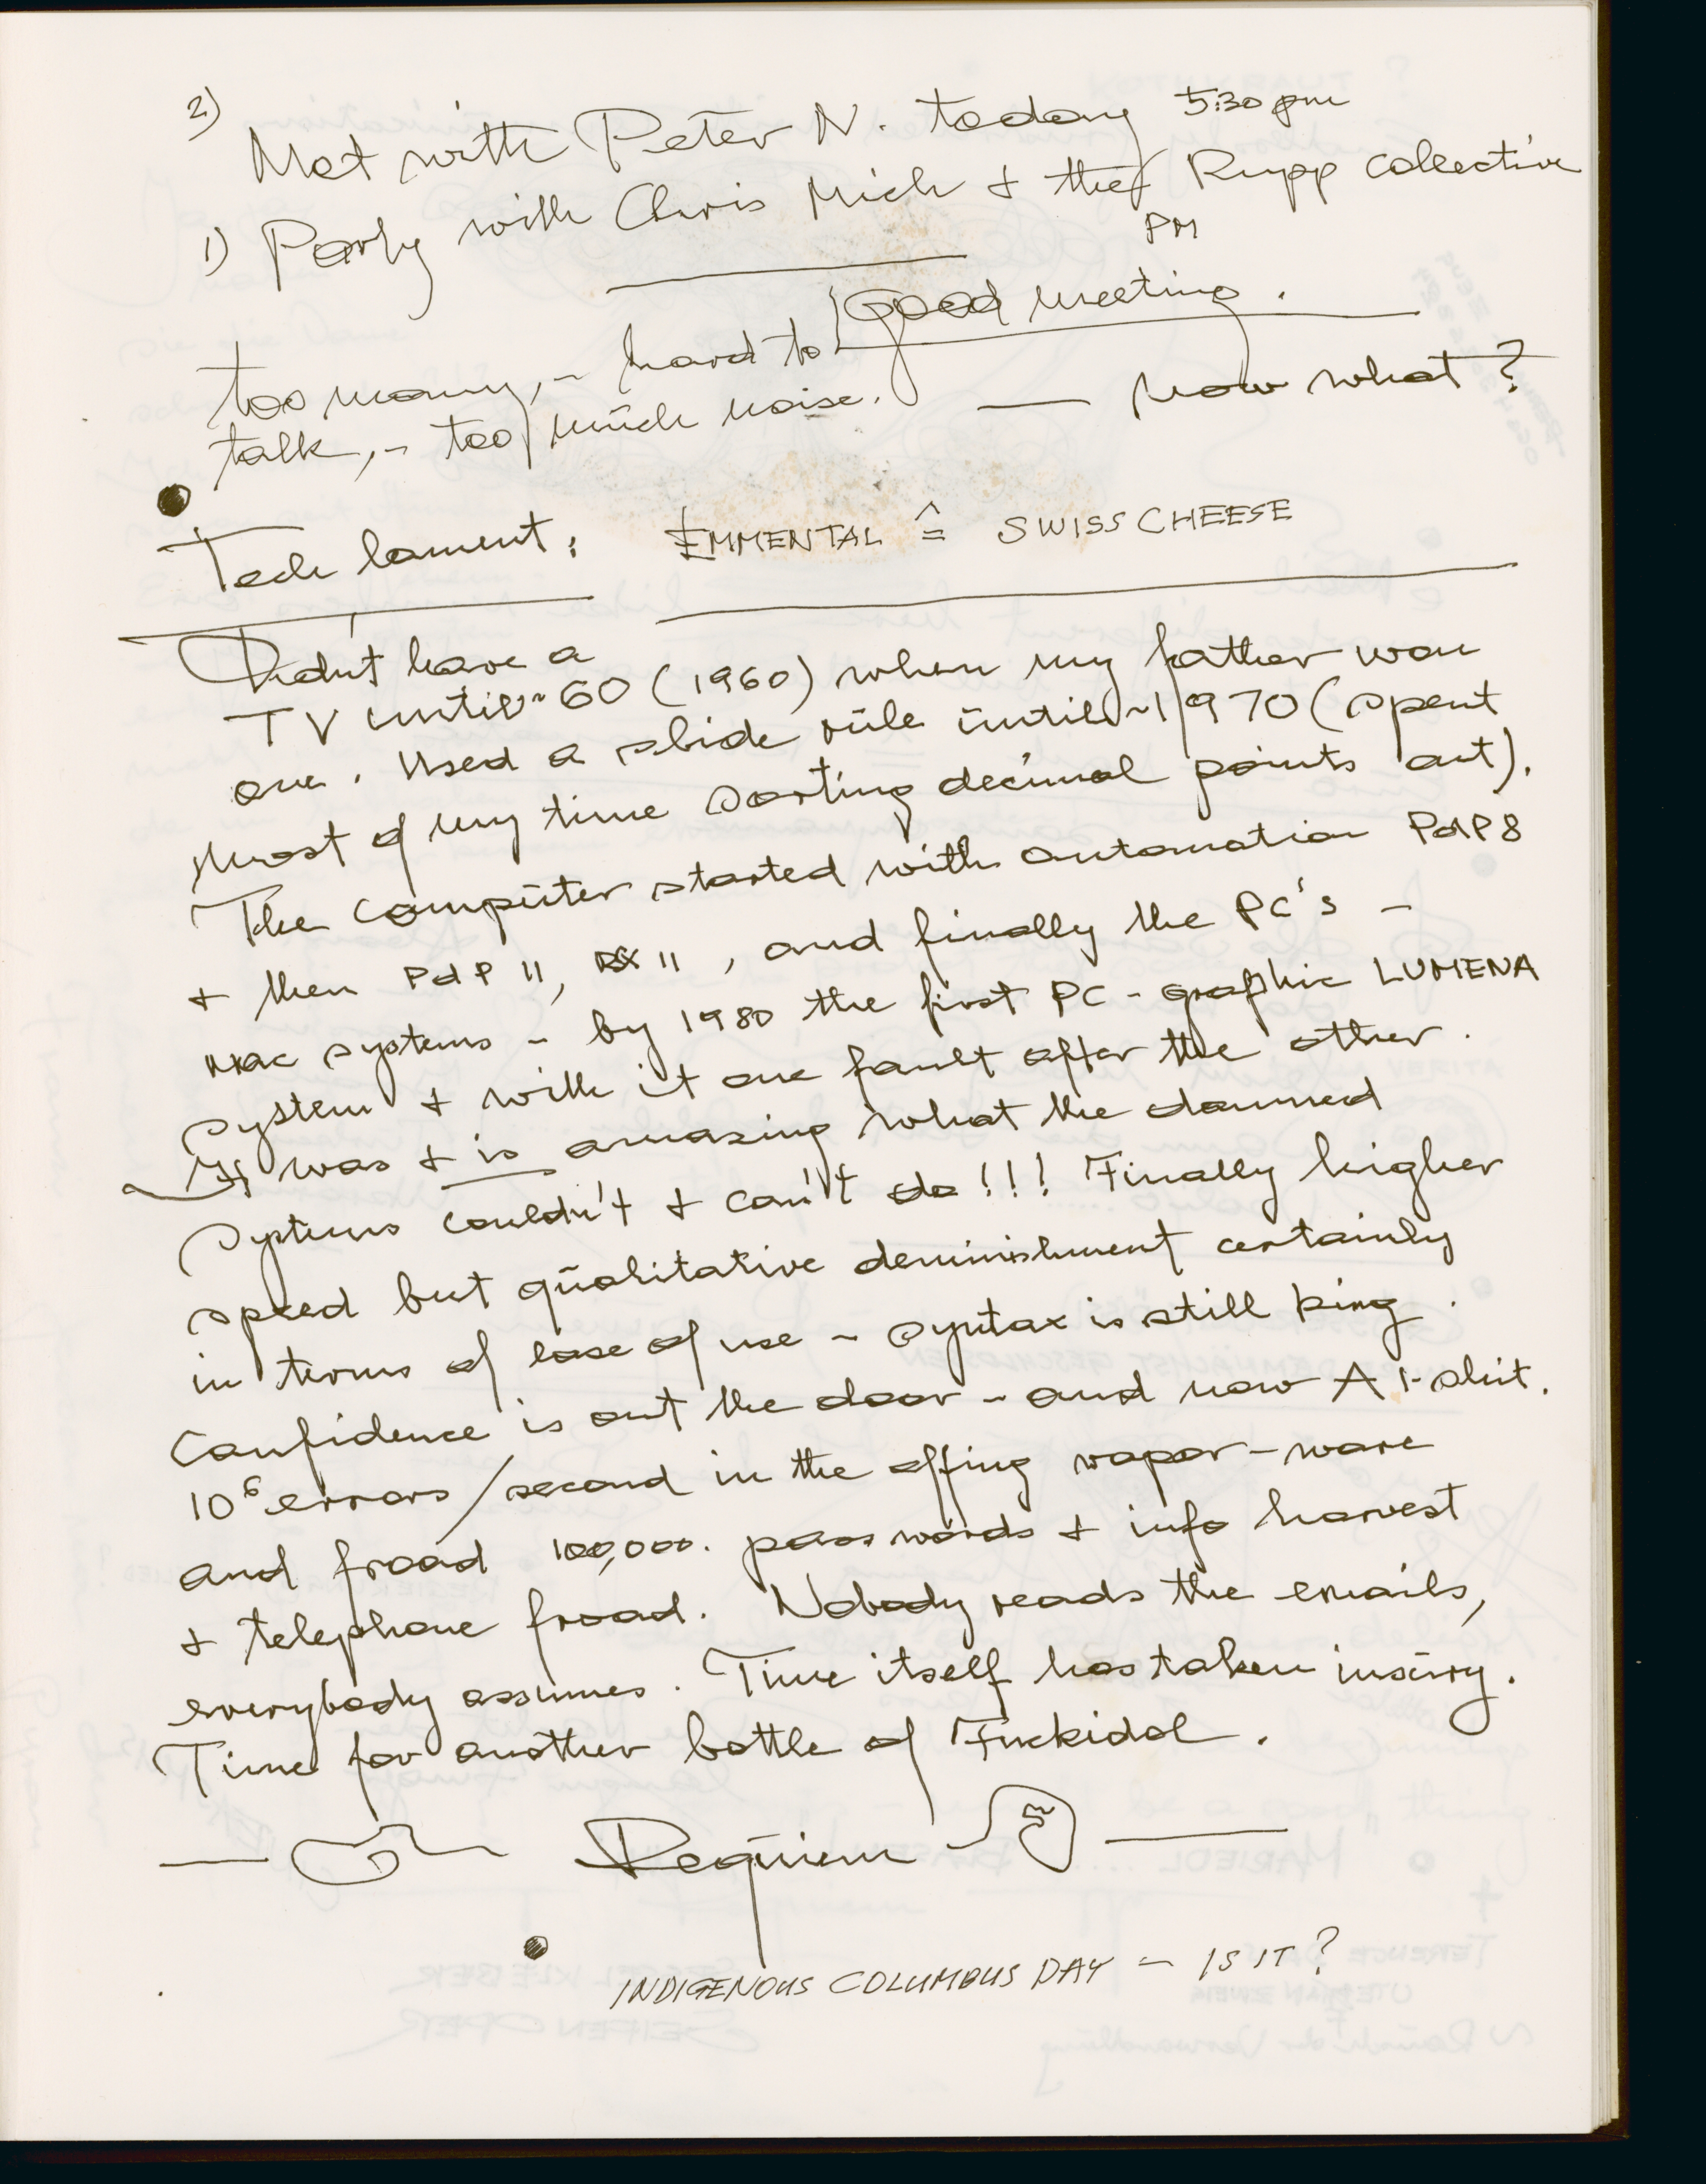 2)
Met with Peter N. today 5:30 pm
1) Party with Chris Mich + the Rupp collective
PM
good meeting.
too many, – hard to
talk, – too much noise. — now what?
Tech lament: EMMENTAL ≙ SWISS CHEESE
Didn't have a
TV until ~60 (1960) when my father won
one. Used a slide rule until ~1970 (spent
most of my time sorting decimal points out).
The computer started with automation PdP8
+ then PdP 11, 11, and finally the PC's –
Mac systems – by 1980 the first PC-graphic LUMENA
system + with it one fault after the other.
It was + is amazing what the damned
systems couldn't + can't do!!! Finally higher
speed but qualitative deminishment certainly
in terms of ease of use – syntax is still king.
Confidence is out the door – and now AI-shit.
10⁶ errors/second in the offing vapor-ware
and froad 100,000. passwords + info harvest
+ telephone froad. Nobody reads the emails,
everybody assumes. Time itself has taken injury.
Time for another bottle of Fuckidol.
— Requiem —
INDIGENOUS COLUMBUS DAY – IS IT?